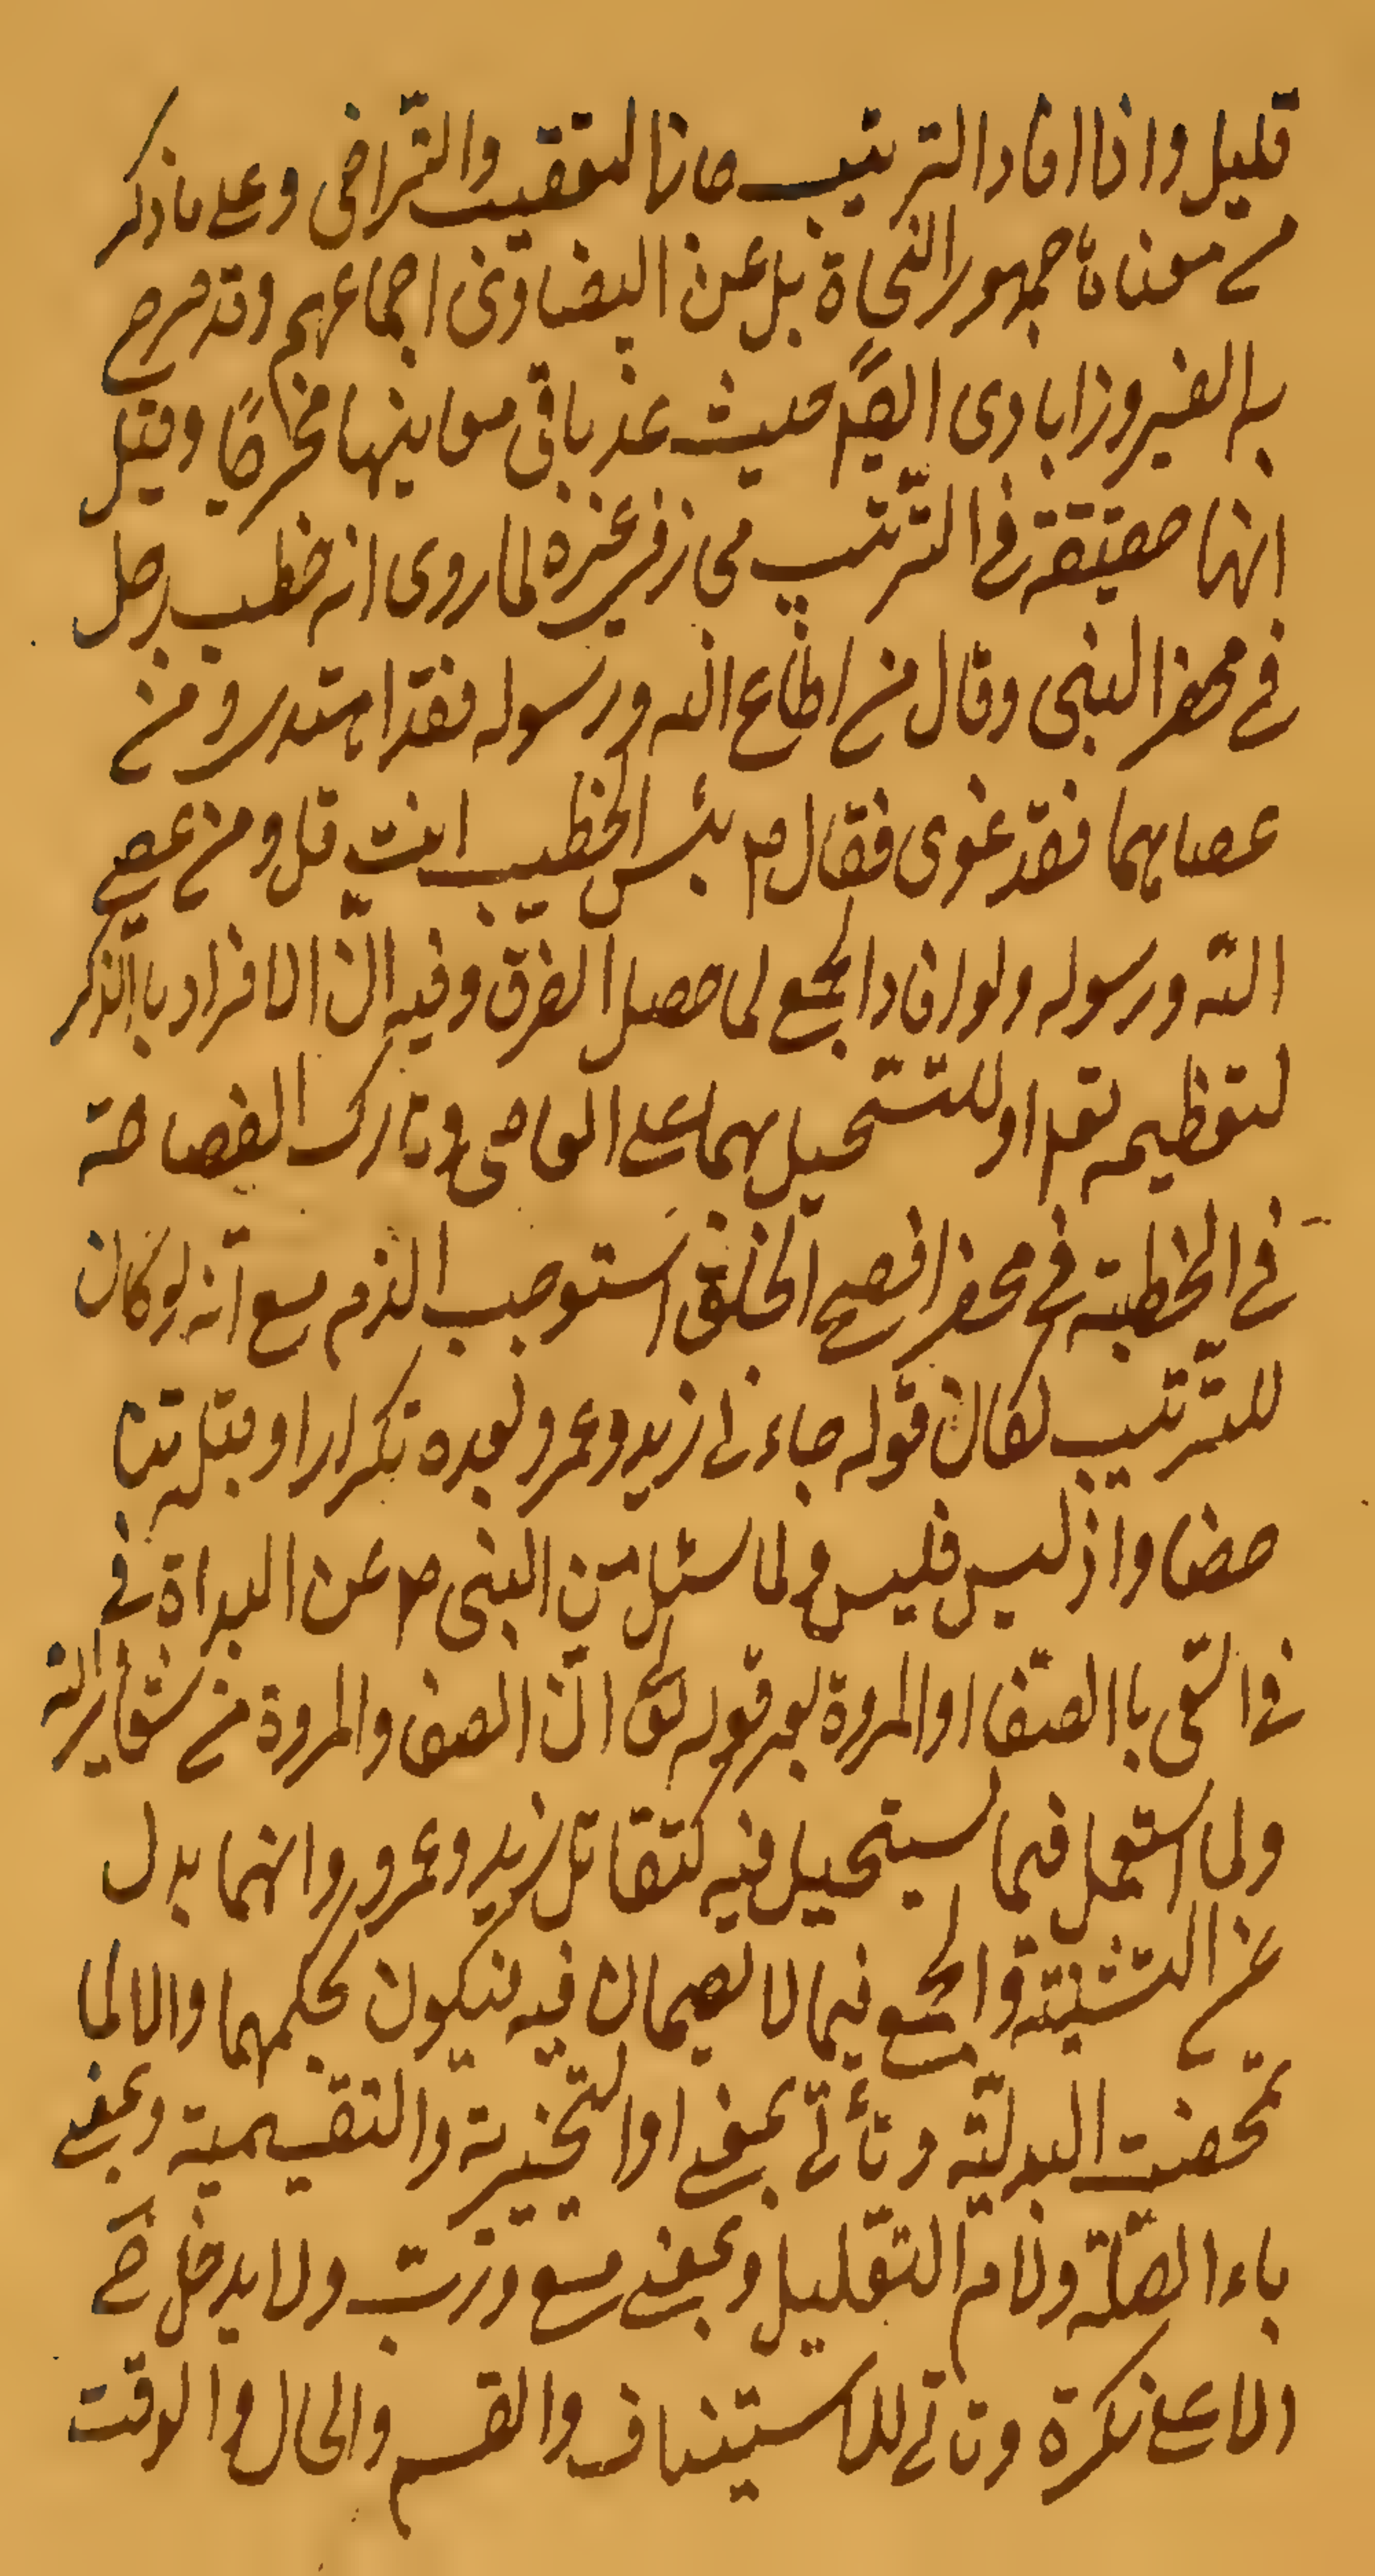 قليل واذا افاد الترتيب جاز التعقيب والتراخى وعلى ما ذكر
من معناه جمهور النحاة بل عن البيضاوى اجماعهم وقد صرح
به الفيروزابادى ايضًا حيث عد باقى معاينها مخرجًا وقيل
انها حقيقة فى الترتيب محى زفى غيره لما روى انه خطب رجل
فى محضر النبى وقال من اطاع الله ورسوله فقد اهتدى ومن
عصاهما فقد غوى فقال ص بئس الخطيب انت قل ومن عصى
الله ورسوله ولو افاد الجمع لما حصل الفرق وفيه انّ الافراد باالذكر
لتعظيمه تعه او للتسحيل بهما على العاصى وتارك الفصاحة
فى الخطبة فى محضر افصح الخلق استوجب الذم مع انّه لو كان
للترتيب لكان قوله جاءنى زيد وعمرو بعده تكرارا وقبله تنا
قضا واذ ليس فليس ولما سئل من النبى ص عن البداة فى
فى السّعى باالصّفا او المروة بعد قوله تعالى انّ الصفا والمروة من شعاير الله
ولما استعمل فيما يستحيل فيه كتقاتل زيد وعمرو وانهما بدل
عن التثنية والجمع فيما لا يصحان فيه فيكون بحكمهما والا لما
تمحضت البدليّة وتأتى بمعنى او التخيرية والتقسيمية وبمعنى
باء الصّلة ولام التعليل وبمعنى مع وربّ ولا يدخل ح
الا على نكرة وتاتى للاستيناف والقسم والحال والوقت